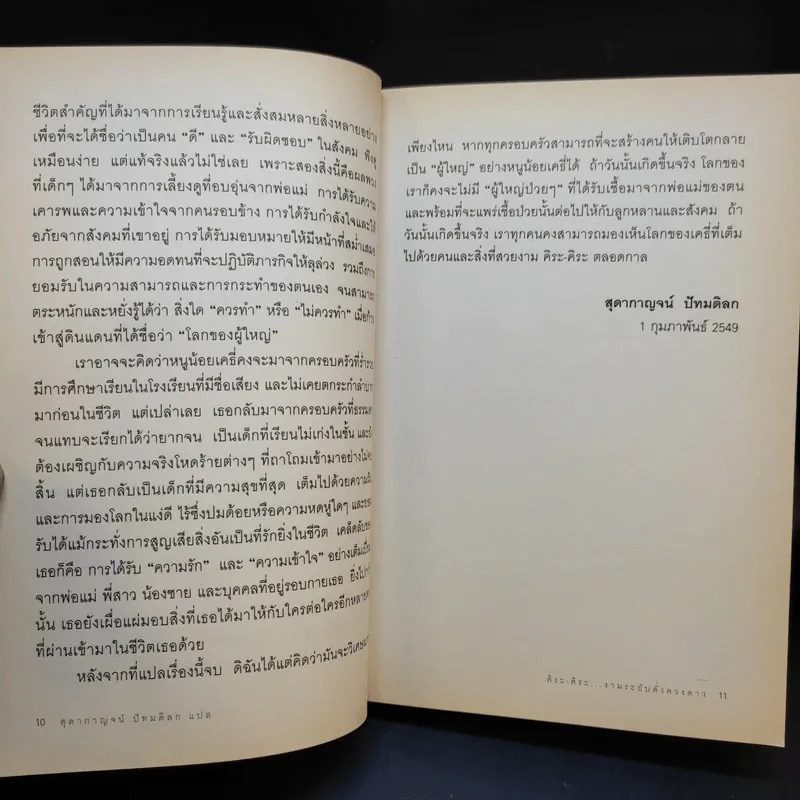 ชีวิตสำคัญที่ได้มาจากการเรียนรู้และสั่งสมหลายสิ่งหลายอย่าง
เพื่อที่จะได้ชื่อว่าเป็นคน “ดี” และ “รับผิดชอบ” ในสังคม ฟังดู
เหมือนง่าย แต่แท้จริงแล้วไม่ใช่เลย เพราะสองสิ่งนี้คือผลพวง
ที่เด็กๆ ได้มาจากการเลี้ยงดูที่อบอุ่นจากพ่อแม่ การได้รับความ
เคารพและความเข้าใจจากคนรอบข้าง การได้รับกำลังใจและให้
อภัยจากสังคมที่เขาอยู่ การได้รับมอบหมายให้มีหน้าที่สม่ำเสมอ
การถูกสอนให้มีความอดทนที่จะปฏิบัติภารกิจให้ลุล่วง รวมถึงการ
ยอมรับในความสามารถและการกระทำของตนเอง จนสามารถ
ตระหนักและหยั่งรู้ได้ว่า สิ่งใด “ควรทำ” หรือ “ไม่ควรทำ” เมื่อก้าว
เข้าสู่ดินแดนที่ได้ชื่อว่า “โลกของผู้ใหญ่”
เราอาจจะคิดว่าหนูน้อยเคธี่คงจะมาจากครอบครัวที่ร่ำรวย
มีการศึกษาเรียนในโรงเรียนที่มีชื่อเสียง และไม่เคยตกระกำลำบาก
มาก่อนในชีวิต แต่เปล่าเลย เธอกลับมาจากครอบครัวที่ธรรมดา
จนแทบจะเรียกได้ว่ายากจน เป็นเด็กที่เรียนไม่เก่งในชั้น และ
ต้องเผชิญกับความจริงโหดร้ายต่างๆ ที่ถาโถมเข้ามาอย่าง
สิ้น แต่เธอกลับเป็นเด็กที่มีความสุขที่สุด เต็มไปด้วยความ
และการมองโลกในแง่ดี ไร้ซึ่งปมด้อยหรือความหดหู่ใดๆ และ
รับได้แม้กระทั่งการสูญเสียสิ่งอันเป็นที่รักยิ่งในชีวิต เคล็ดลับของ
เธอก็คือ การได้รับ “ความรัก” และ “ความเข้าใจ” อย่างเต็มเปี่ยม
จากพ่อแม่ พี่สาว น้องชาย และบุคคลที่อยู่รอบกายเธอ ยิ่งไปกว่า
นั้น เธอยังเผื่อแผ่มอบสิ่งที่เธอได้มาให้กับใครต่อใครอีกหลายคน
ที่ผ่านเข้ามาในชีวิตเธอด้วย
หลังจากที่แปลเรื่องนี้จบ ดิฉันได้แต่คิดว่ามันจะวิเศษ
10 สุดากาญจน์ ปัทมดิลก แปล
เพียงไหน หากทุกครอบครัวสามารถที่จะสร้างคนให้เติบโตกลาย
เป็น “ผู้ใหญ่” อย่างหนูน้อยเคธี่ได้ ถ้าวันนั้นเกิดขึ้นจริง โลกของ
เราก็คงจะไม่มี “ผู้ใหญ่ป่วยๆ” ที่ได้รับเชื้อมาจากพ่อแม่ของตน
และพร้อมที่จะแพร่เชื้อป่วยนั้นต่อไปให้กับลูกหลานและสังคม ถ้า
วันนั้นเกิดขึ้นจริง เราทุกคนคงสามารถมองเห็นโลกของเคธี่ที่เต็ม
ไปด้วยคนและสิ่งที่สวยงาม คิระ-คิระ ตลอดกาล
สุดากาญจน์ ปัทมดิลก
1 กุมภาพันธ์ 2549
คิระ-คิระ...งามระยับดั่งดวงดาว 11